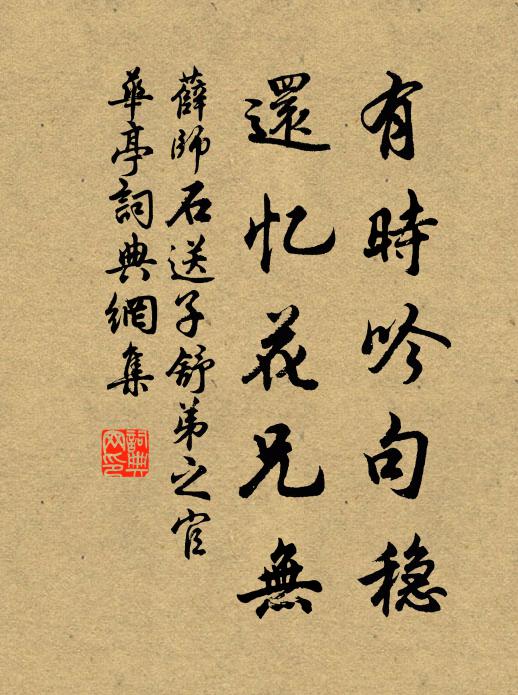 有時吟句穩
還忆花兄無
薛師石送子舒弟之官
華亭詞典網集
詞典網印